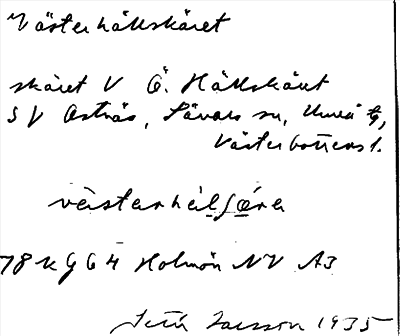 Västerhällskäret
skäret V Ö. Hällskäret
SV Ostnäs, Sävars sn, Umeå tg,
Västerbottens l.
västərhälʃæ̀rə
78 Holmön NV A3
1935